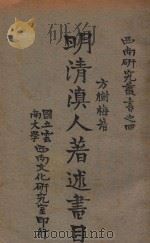 西南研究叢書之四
方樹梅著
明清滇人著述書目
國立雲南大學西南文化研究室印行